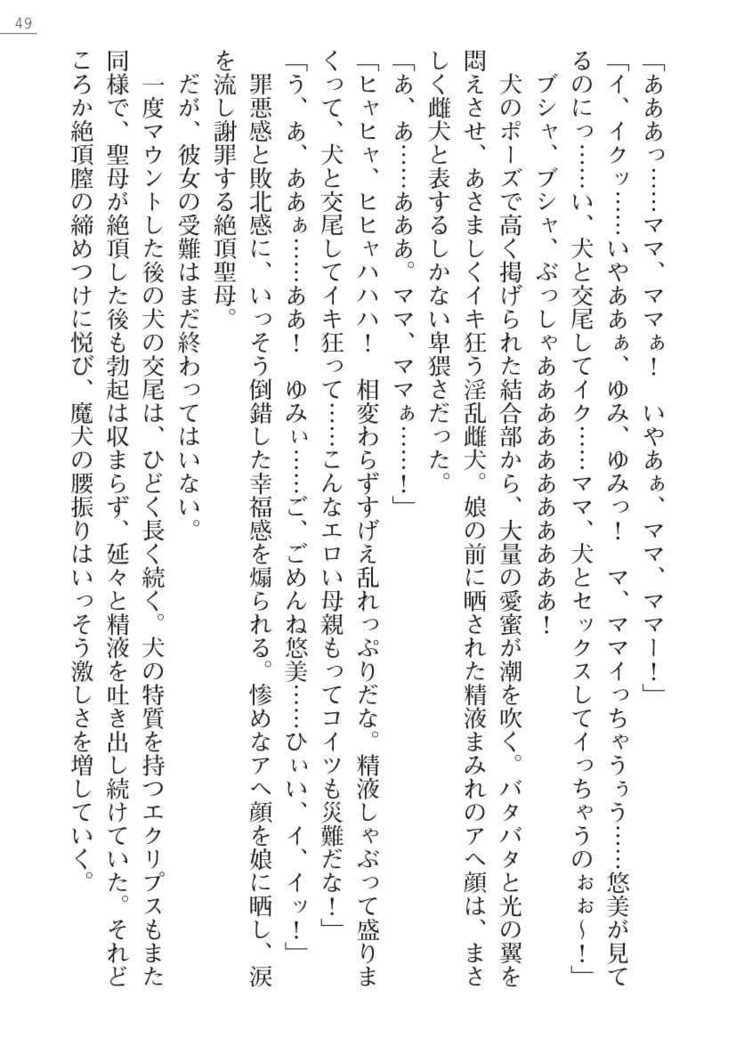 49
「あああっ……ママ、ママぁ！　いやあぁ、ママ、ママー！」
「イ、イクッ……いやああぁ、ゆみ、ゆみっ！　マ、ママイっちゃうぅう……悠美が見て
るのにっ……い、犬と交尾してイク……ママ、犬とセックスしてイっちゃうのぉぉ～！」
ブシャ、ブシャ、ぶっしゃあああああああああああ！
犬のポーズで高く掲げられた結合部から、大量の愛蜜が潮を吹く。バタバタと光の翼を
悶えさせ、あさましくイキ狂う淫乱雌犬。娘の前に晒された精液まみれのアヘ顔は、まさ
しく雌犬と表するしかない卑猥さだった。
「あ、あ……あああ。ママ、ママぁ……！」
「ヒャヒャ、ヒヒャハハハ！　相変わらずすげえ乱れっぷりだな。精液しゃぶって盛りま
くって、犬と交尾してイキ狂って……こんなエロい母親もってコイツも災難だな！」
「う、あ、ああぁ……ああ！　ゆみぃ……ご、ごめんね悠美……ひぃい、イ、イッ！」
罪悪感と敗北感に、いっそう倒錯した幸福感を煽られる。惨めなアヘ顔を娘に晒し、涙
を流し謝罪する絶頂聖母。
だが、彼女の受難はまだ終わってはいない。
一度マウントした後の犬の交尾は、ひどく長く続く。犬の特質を持つエクリプスもまた
同様で、聖母が絶頂した後も勃起は収まらず、延々と精液を吐き出し続けていた。それど
ころか絶頂膣の締めつけに悦び、魔犬の腰振りはいっそう激しさを増していく。